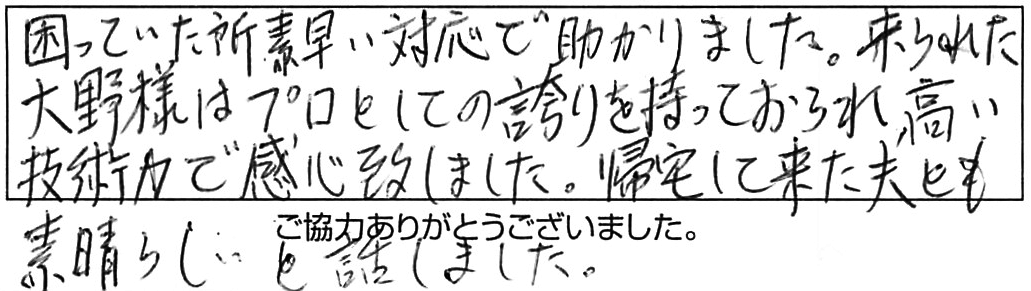 困っていた所素早い対応で助かりました。来られた
大野様はプロとしての誇りを持っておられ、高い
技術力で感心致しました。帰宅して来た夫とも
ご協力ありがとうございました。
素晴らしいと話しました。